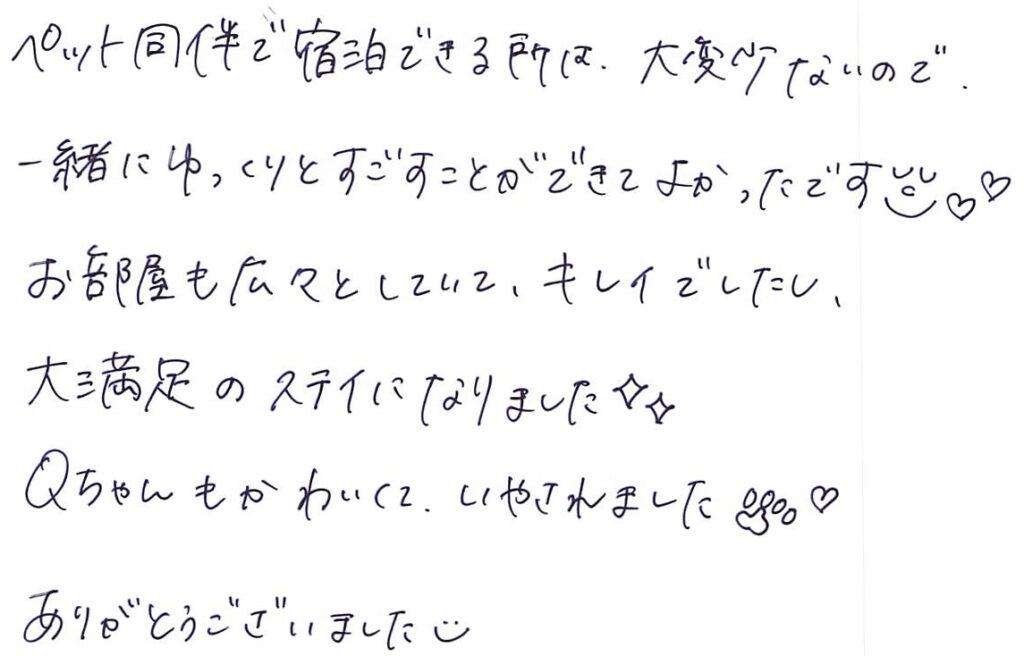 ペット同伴で宿泊できる所は、大変少ないので、
一緒にゆっくりとすごすことができてよかったです♡♡
お部屋も広々としていて、キレイでしたし、
大満足のステイになりました✧✧
Qちゃんもかわいくて、いやされました♡
ありがとうございました